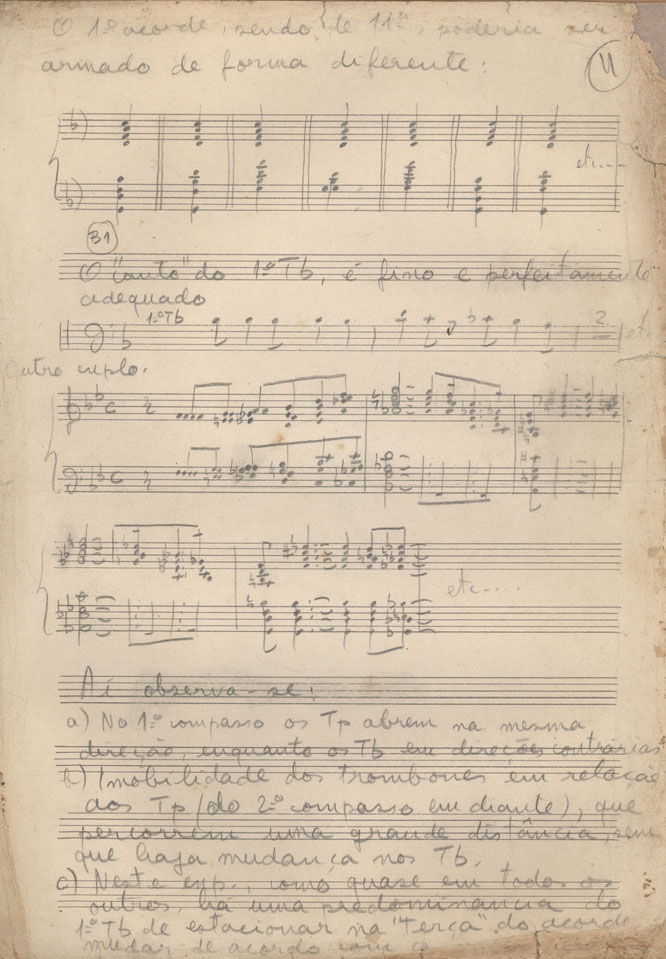 O 1º acorde, sendo de 11ª, poderia ser
armado de forma diferente.
11
etc....
B1
O "canto" do 1º Tb, é fino e perfeitamente
adequado
1º Tb
2
etc
Outro explo.
C
C
etc....
Aí observa-se:
a) No 1º compasso os Tp abrem na mesma
direção, enquanto os Tb em direções contrárias
b) Imobilidade dos trombones em relação
aos Tp (do 2º compasso em diante), que
percorrem uma grande distância, sem
que haja mudança nos Tb.
c) Neste exp., como quase em todos os
outros, há uma predominancia do
1º Tb de estacionar na "Terça" do acorde
mudar de acordo com